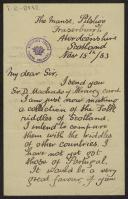 The Manse, Pitsligo
Fraserburgh
Aberdeenshire
Scotland
Nov 15th /83
My dear Sir,
I send you
Sr D. Machado y Alvarez' card.
I am just now making
a collection of the Folk
riddles of Scotland.
I intend to compare
them with the riddles
of other countries. I
have not yet got
those of Portugal.
It would be a very
great favour if you